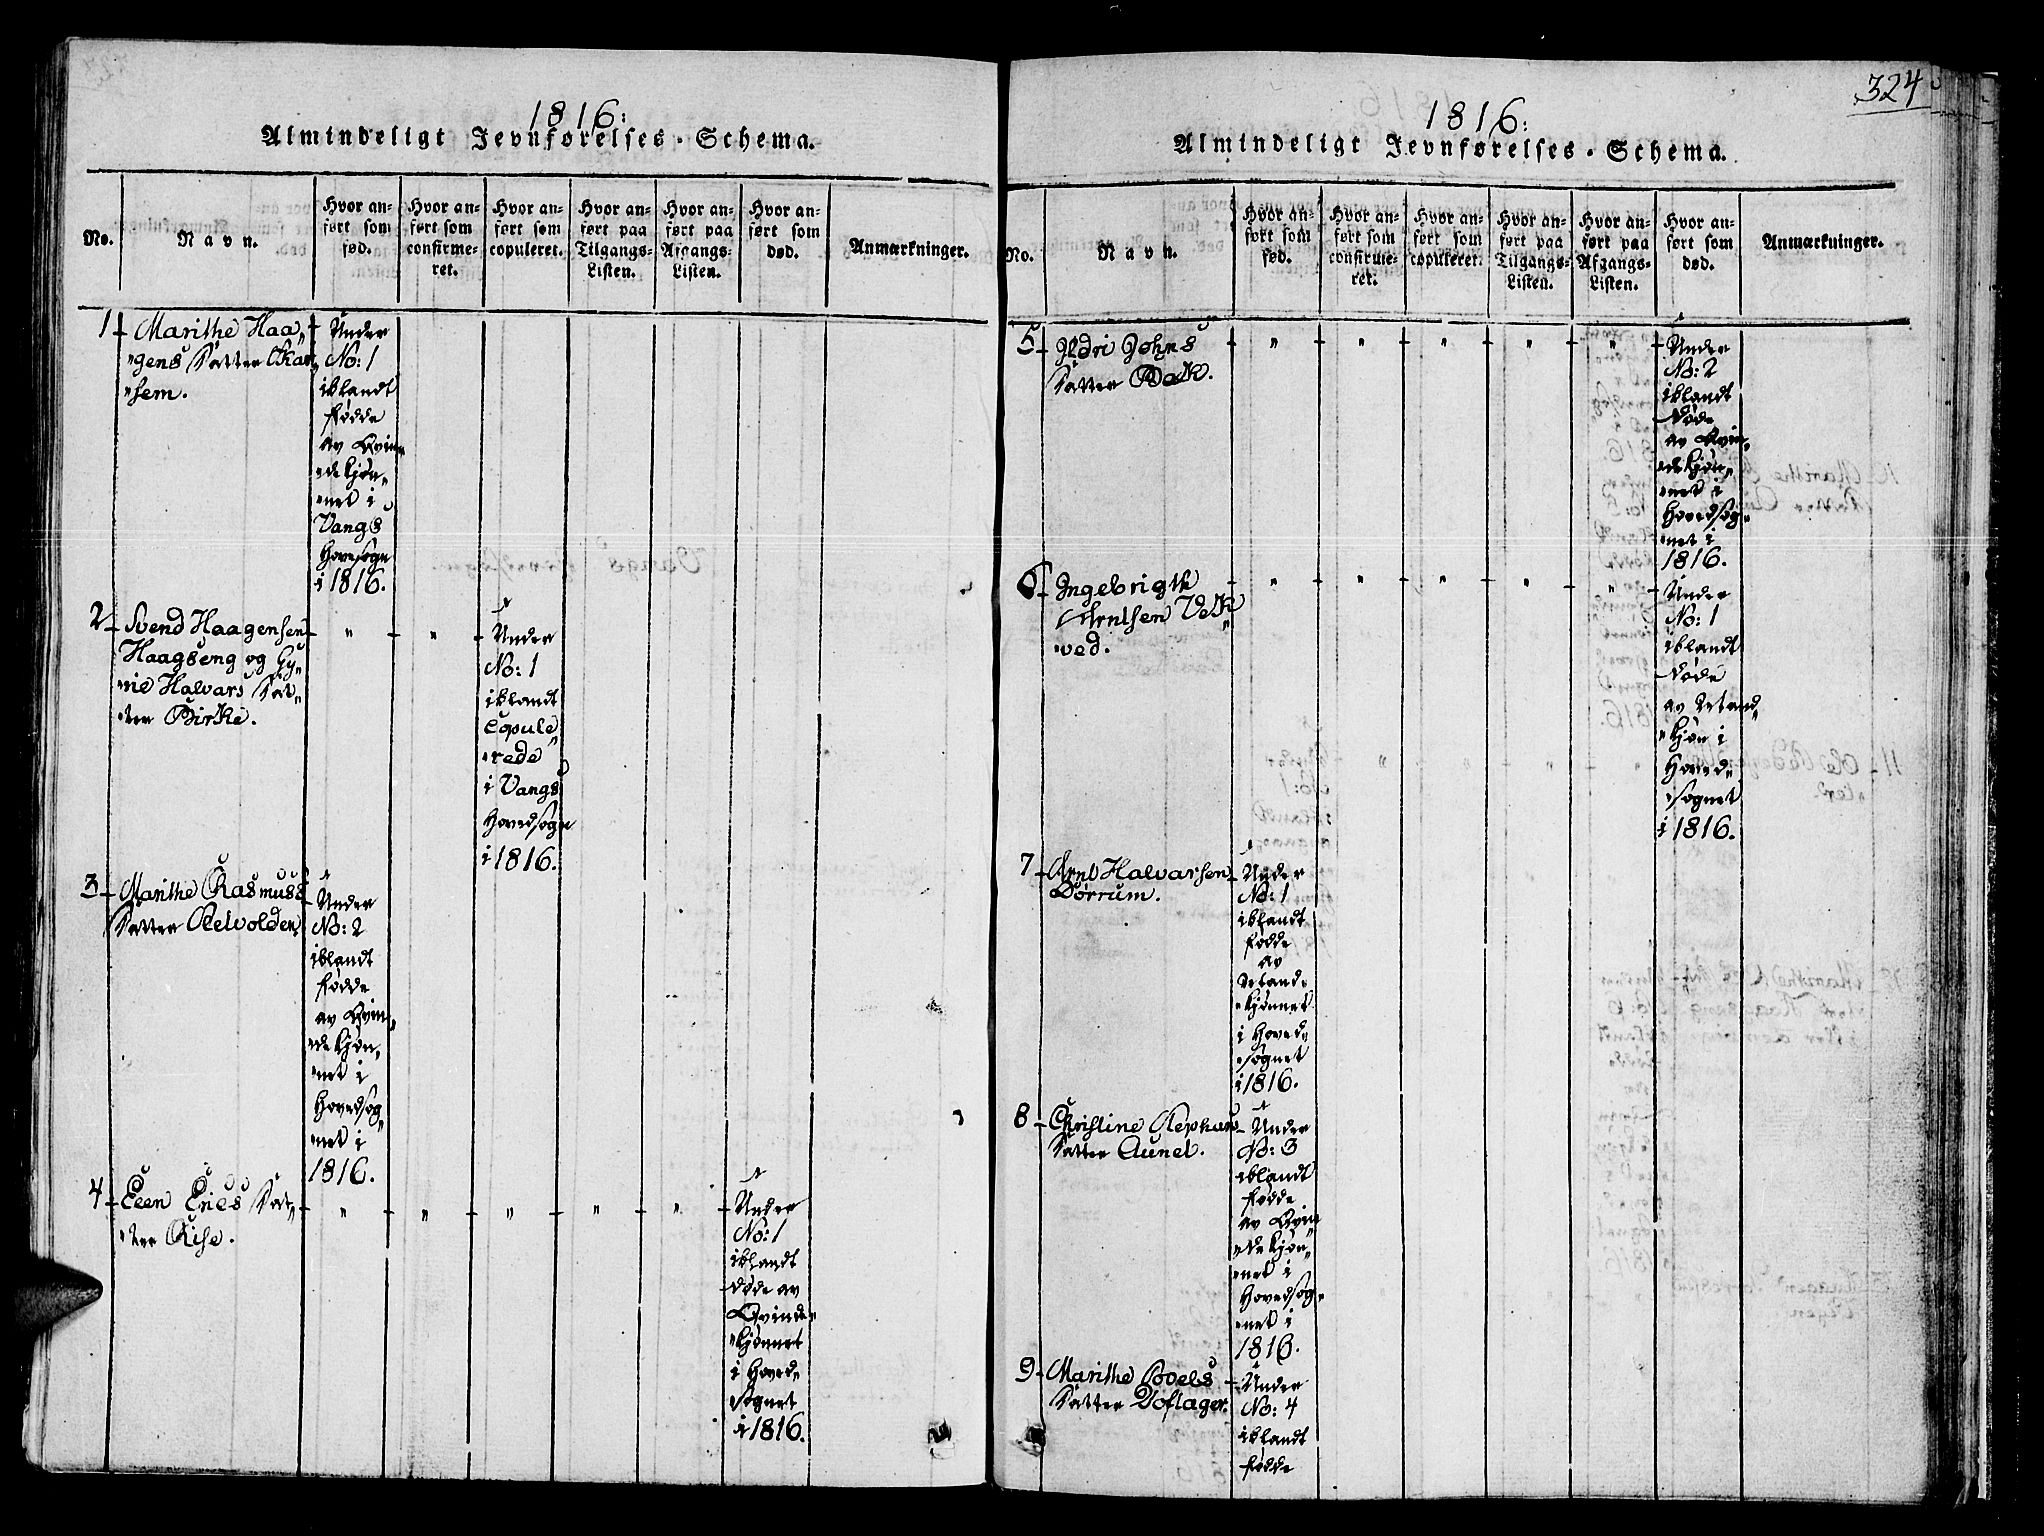 1816:
Almindeligt Jevnførelses-Schema.
No.
Navn.
Hvor an-
ført som
fød.
Hvor an-
ført som
confirme-
ret.
Hvor an-
ført som
copuleret.
Hvor an-
ført paa
Tilgangs-
Listen.
Hvor an-
ført paa
Afgangs-
Listen.
Hvor an-
ført som
død.
Anmærkninger.
1 Marithe Haa„
„gens Datter
„sem.
Under
No: 1
iblandt
fødde
av Qvin„
„dekjøn„
„net i
Vangs
Hovesogn
i 1816.
2 Svend Haagensen
Haagseng og Gu„
„rie Halvars Dat„
„ter Birke.
" "
Under
No: 1
iblandt
Copule„
„rede
i Vangs
Hovedsogn
i 1816.
3 Marithe Rasmuss
Datter Aelvolden
Under
No: 2
iblandt
fødde
av Qvin„
„dekjøn„
„net i
Hovedsog„
„net i
1816.
4 Eeen Erics Dat„
„ter Rise.
" " " " "
Under
No: 1
iblandt
døde av
Qvinde„
„kjønnet
i Hoved„
„sognet
i 1816.
324
1816:
Almindeligt Jevnførelses-Schema.
No.
Navn.
Hvor an-
ført som
fød.
Hvor an-
ført som
confirme-
ret.
Hvor an-
ført som
copuleret.
Hvor an-
ført paa
Tilgangs-
Listen.
Hvor an-
ført paa
Afgangs-
Listen.
Hvor an-
ført som
død.
Anmærkninger.
5 Ildri Johns
Datter Bæk.
" " " " "
Under
No: 2
iblandt
døde
av Qvin„
„dekjøn„
„net i
Hovedsog„
„net i
1816.
6 Ingebrigth
Arntsen Vek„
„ved.
" " " " "
Under
No: 1
iblandt
døde
av Mand„
„kjøn i
Hoved„
„sognet
i 1816.
7 Arnt Halvarsen
Dørrum.
Under
No: 1
iblandt
fødde
av
Mand„
„kjønnet
i Hoved„
„sognet
i 1816.
8 Christine
Datter Aunel.
Under
No: 3
iblandt
fødde
av Qvin„
„dekjøn„
„net i
Hovedsog„
„net i
1816.
9 Marithe Poels
Datter Voflager.
Under
No: 4
iblandt
fødde